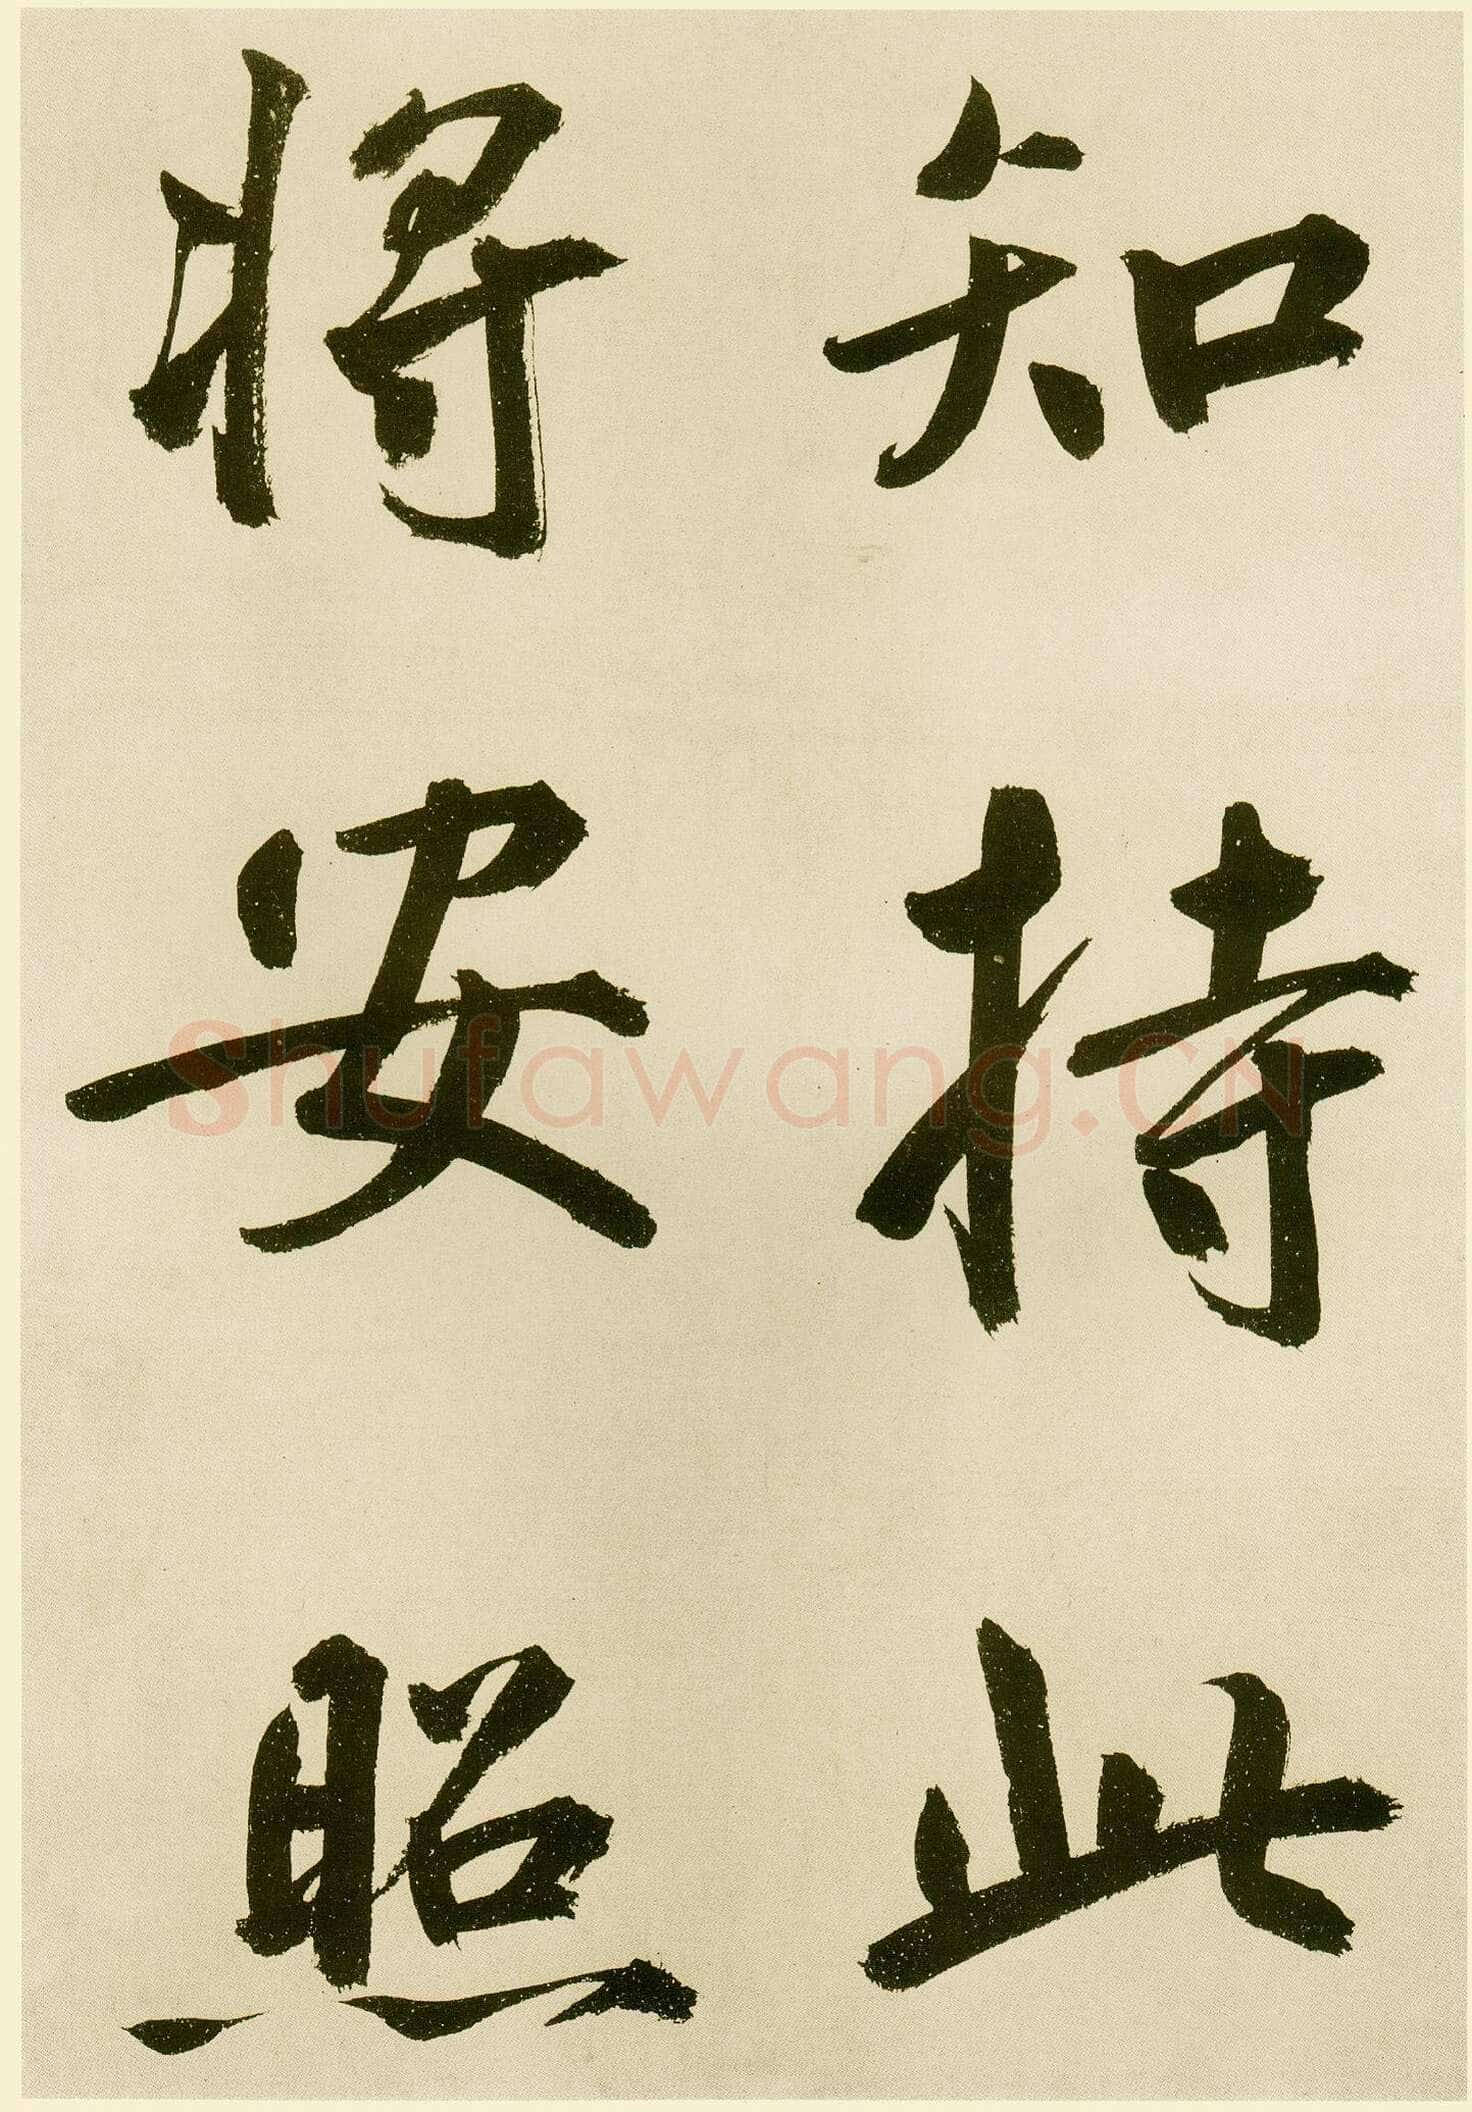 知持此
將安照
Shufawang.CN